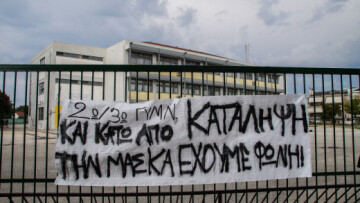 2ο/3ο ΓΥΜΝ, ΚΑΤΑΛΗΨΗ
ΚΑΙ ΚΑΤΩ ΑΠΟ
ΤΗΝ ΜΑΣΚΑ ΕΧΟΥΜΕ ΦΩΝΗ!